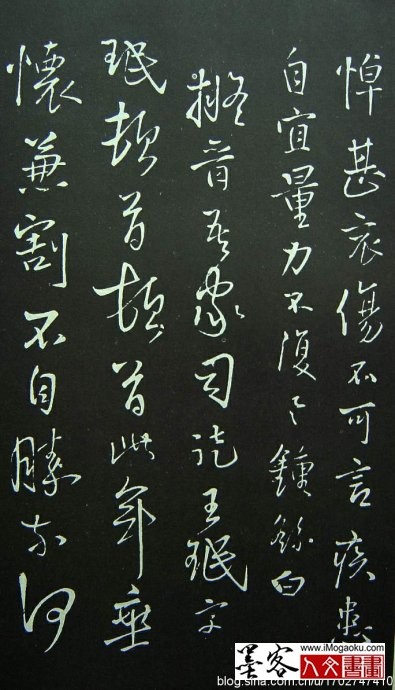 悼甚哀傷不可言疾患
自宜量力不復鍾繇白
擬晉吾家司徒王珉字
珉頓首頓首此年垂
懷兼割不自勝奈何
墨客
www.iMogaoku.com
人文書畫
blog.sina.com.cn/u/1702747410